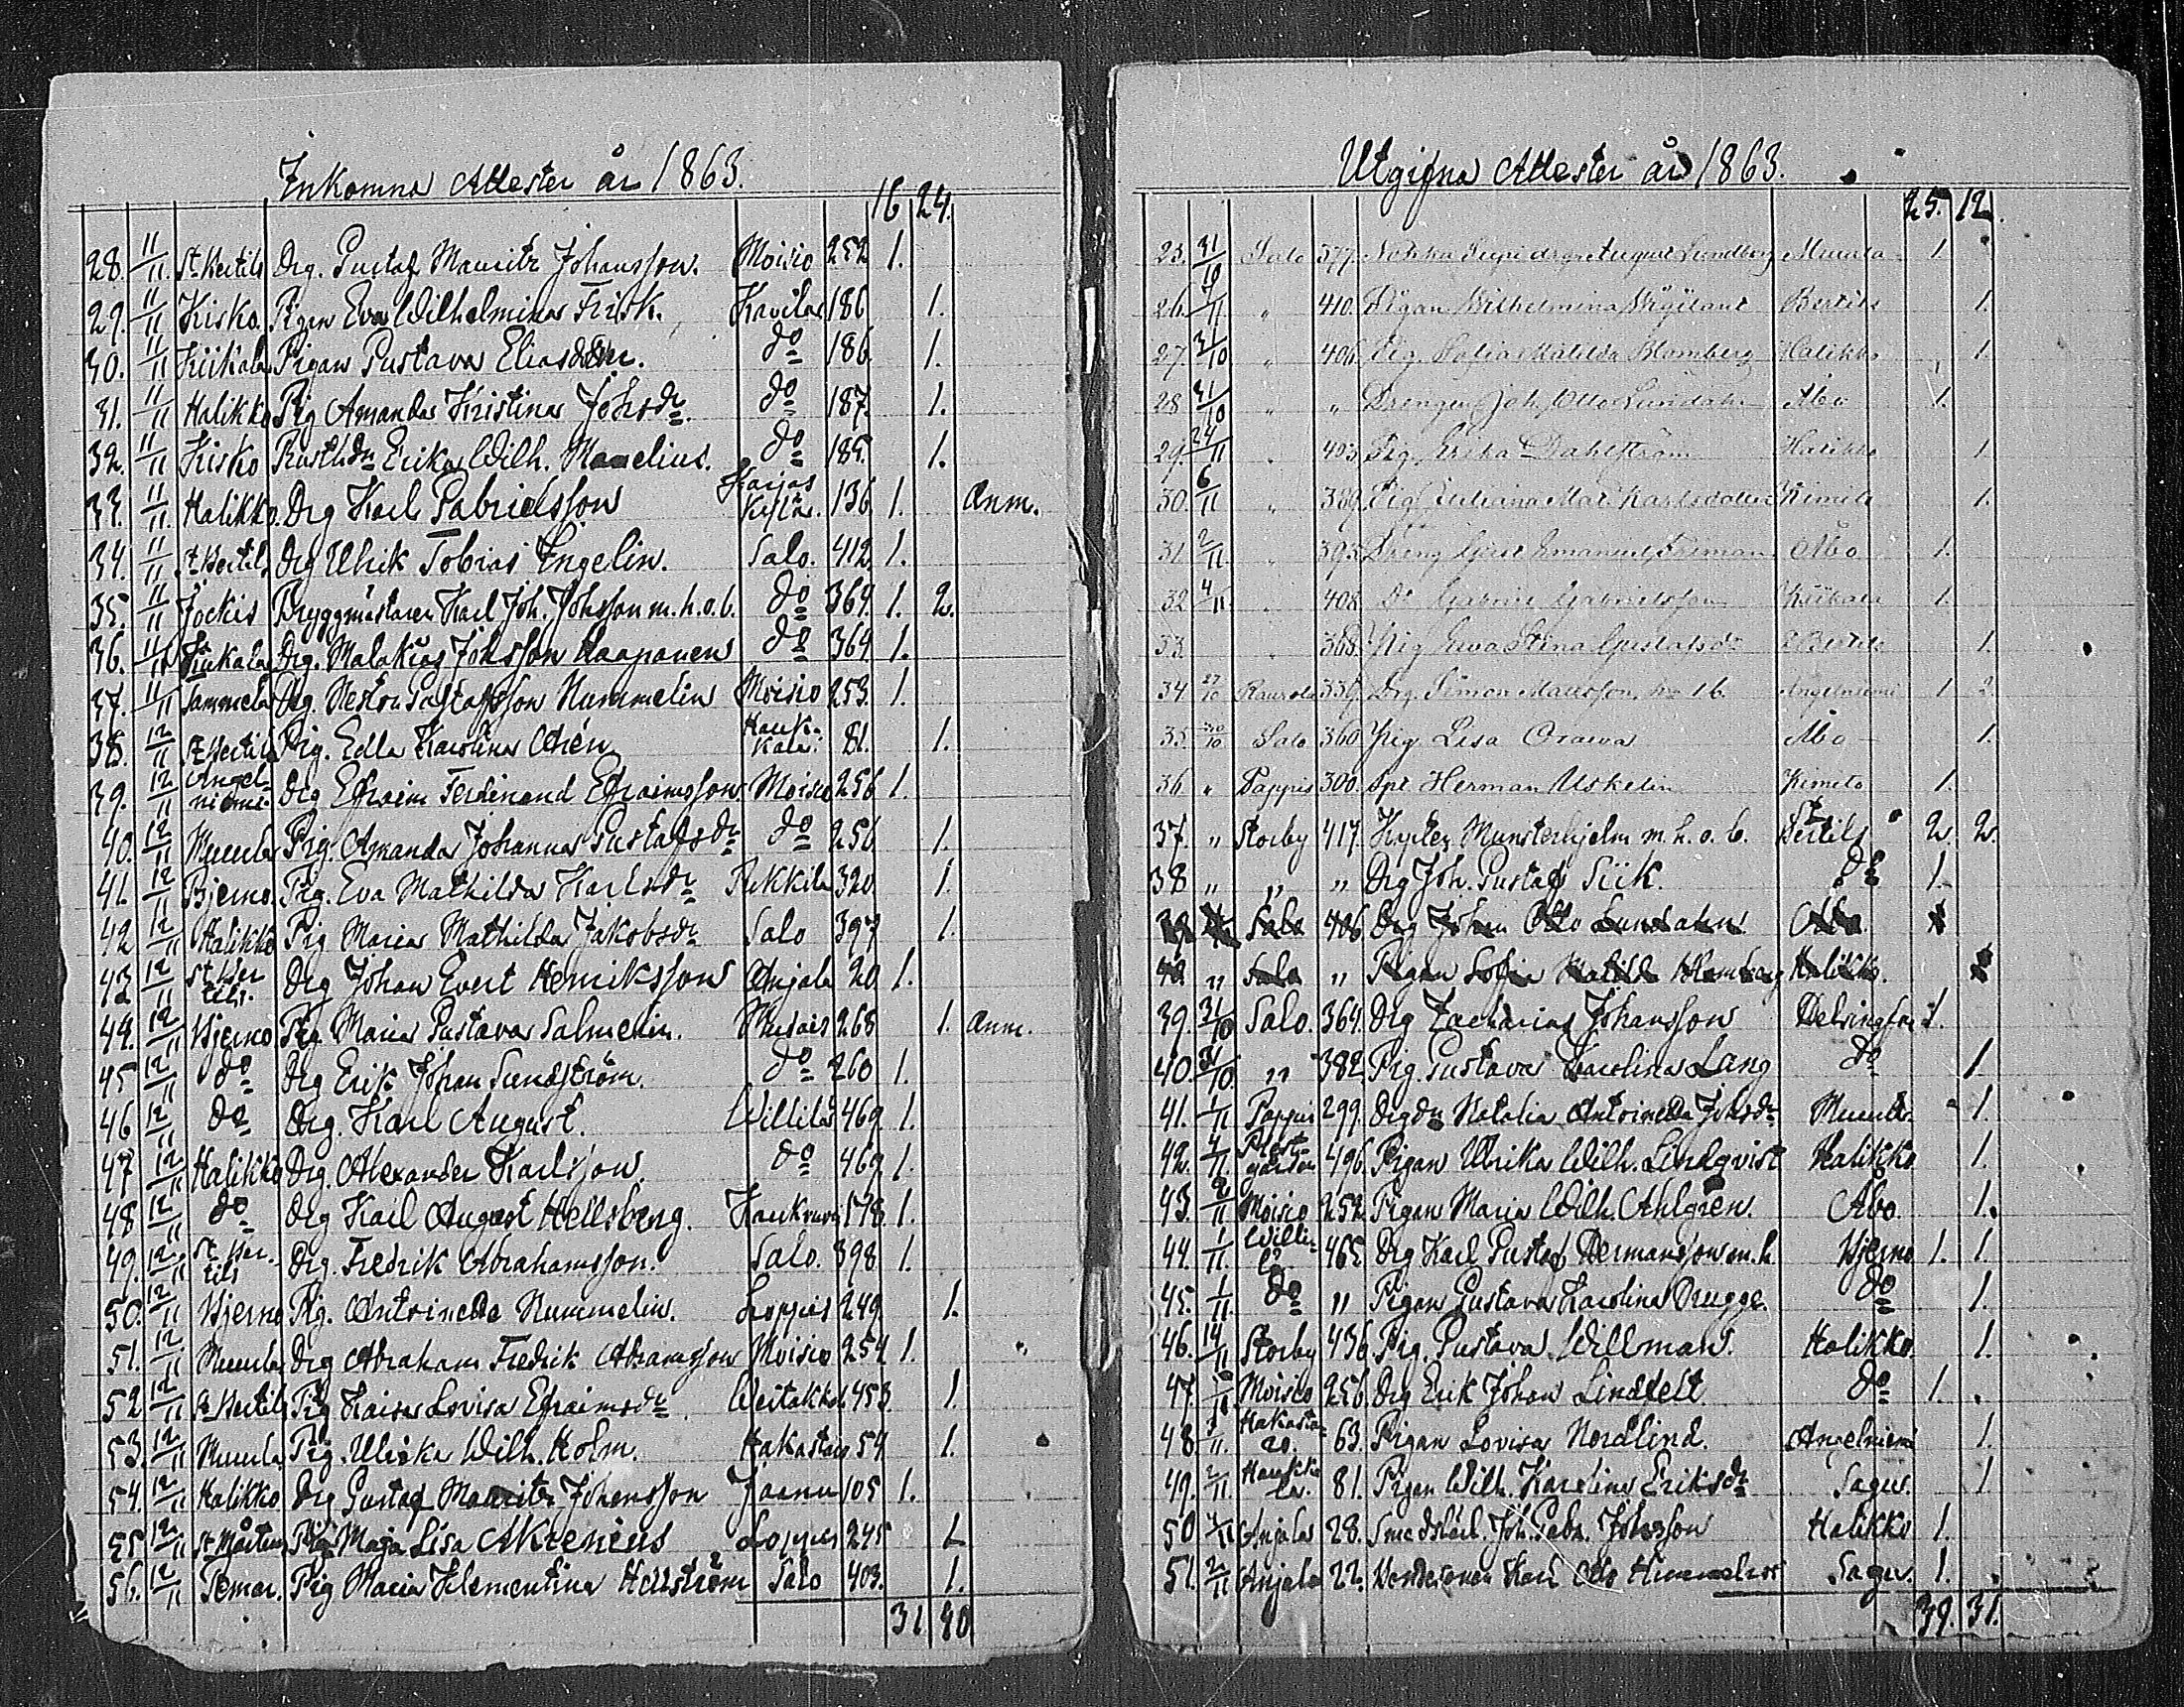 Inkomna Attester år 1863.
16 24.
28. 11/11 St Bertils Drg. Gustaf Mauritz Johansson. Moisio 252 1.
29. 11/11 Kisko. Pigan Eva Wilhelmina Frisk. Kavila 186 1.
30. 11/11 Kiikala Pigan Gustava Eliasdr. do 186. 1.
31. 11/11 Halikko Pig Amanda Kristina Johsdr. do 187. 1.
32. 11/11 Kisko Rusthdr Erika Wilh. do 185. 1.
33. 11/11. Halikko. Drg Karl Gabrielsson Karjas kylä. 136. 1. Anm.
34. 11/11 St Bertils Drg Ulrik Tobias Engelin. Salo. 412. 1.
35. 11/11 Jockis Bryggmästaren Karl Joh. Johsson m. h. o. b. do 369. 1. 2.
36. 11/11 Kiikala Drg. Malakias Johsson Haapanen do 369. 1.
37. 11/11 Tammela Drg. Nestor Gustafsson Nummelin Moisio 253. 1.
38. 12/11 St Bertils Pig. Edla Karolina Hauk- kala. 81. 1.
39. 12/11 Angel- niemi. Drg Efraim Ferdinand Efraimsson Moisio 256 1.
40. 12/11 Muurla Pig. Amanda Johanna Gustafsdr do 256 1.
41. 12/11 Bjerno. Pig. Eva Mathilda Karlsdr Pukkila 320. 1.
42 12/11 Halikko Pig Maria Mathilda Jakobsdr Salo 397 1.
43 12/11 St Ber tils. Drg Johan Evert Henriksson Anjala 20 1.
44. 12/11 Bjerno Pig. Maria Gustava Salmelin. 268 1. Anm.
45 12/11 do Drg Erik Johan Sundström. do 260 1.
46 12/11 do Drg. Karl August. Willilä 469. 1.
47 12/11 Halikko Drg. Alexander Karlsson. do 469 1.
48 12/11 do Drg Karl August Hellsberg. 178. 1.
49. 12/11 St Ber- tils Drg. Fredrik Abrahamsson. Salo. 398 1.
50. 12/11 Bjerno Pig. Antoinetta Nummelin. Loppis 249. 1.
51. 12/11 Muurla Drg Abraham Fredrik Abramsson Moisio 254 1.
52 12/11 St Bertils Pig Kaisa Lovisa Efraimsdr Weitakka 453 1.
53. 12/11 Muurla Pig. Ulrika Wilh. Holm. Hakastaro 54 1.
54. 12/11 Halikko Drg Gustaf Mauritz Johansson Joanu 105 1.
55 12/11 St Mårtens Pig Maja Lisa Akrenius Loppis 245 1.
56. 12/11 Pemar. Pig Maria Klementina Hellström Salo 403. 1.
31 40
Utgifna Attester år 1863.
25. 12.
25. 31/10 Salo 377. August Lundberg Muurla 1.
26. /11 " 410. Pigan Wilhelmina Wigilant Bertils 1.
27. 31/10 " 406. Pig. Sofia Matilda Blomberg Halikko 1.
28 31/10 " " Drengen Joh. Otto Lundahn Åbo 1.
29. 24/11 " 403. Pig. Erika Dahlström Halikko 1.
30. 6/11 " 389. Pig. Juliana Mar. Karlsdotter Kimito 1.
31 2/11 " 393. Dreng Emanuel Friman Åbo 1.
32 4/11 " 408. Do Gabriel Gabrielsson Kiikala 1.
33. " 368. Pig Ewa Stina Gustafsdr St Bertils 1.
34 27/10 339. Drg. Simon Mattsson, Angelniemi 1 2
35. 30/10 Salo 360. Pig Lisa Orawa Åbo 1.
36 " Pappis 300. Herman Uskelin Kimito 1.
37. " Storby 417. Munsterhjelm m. h. o. b. St Bertils 2. 2.
38 " " " Drg Joh. Gustaf Siik. do 1.
39 Salo 406 Drg Johan Otto Lundahn Åbo 1
40. " Salo " Pigan Sofia Matilda Blomberg Halikko. 1
39. 31/10 Salo. 364. Drg Zacharias Johansson Helsingfors 1.
40. 31/10. " 382. Pig. Gustava Karolina Lang do 1
41. 1/11 Pappis 299. Drgdr Natalia Antoinetta Johsdr Muurla. 1.
42. 4/11. Prest- gården 496. Pigan Ulrika Wilh. Lindqvist Halikko 1.
43. 2/11 Moisio 252. Pigan Maria Wilh. Ahlgren. Åbo. 1.
44. 1/11 Willi- lä 465 Drg Karl Gustaf Hermansson m. h. Bjerno 1. 1.
45. 1/11. do " Pigan Gustava Karolina Brugge. do 1.
46. 14/11 Storby 436. Pig. Gustava Willman. Halikko 1.
47. /11 Moisio 256. Drg Erik Johan Lindfelt do 1.
48 /11. Hakasta- ro. 63. Pigan Lovisa Nordlind. Angelniemi 1.
49. 2/11 Haukka- la. 81. Pigan Wilh. Karolina Eriksdr Sagu. 1.
50 /11 Anjala 28. Joh. Gabr. Johsson Halikko 1.
51. 2/11 Anjala 22. Karl Otto Sagu. 1.
39. 31.